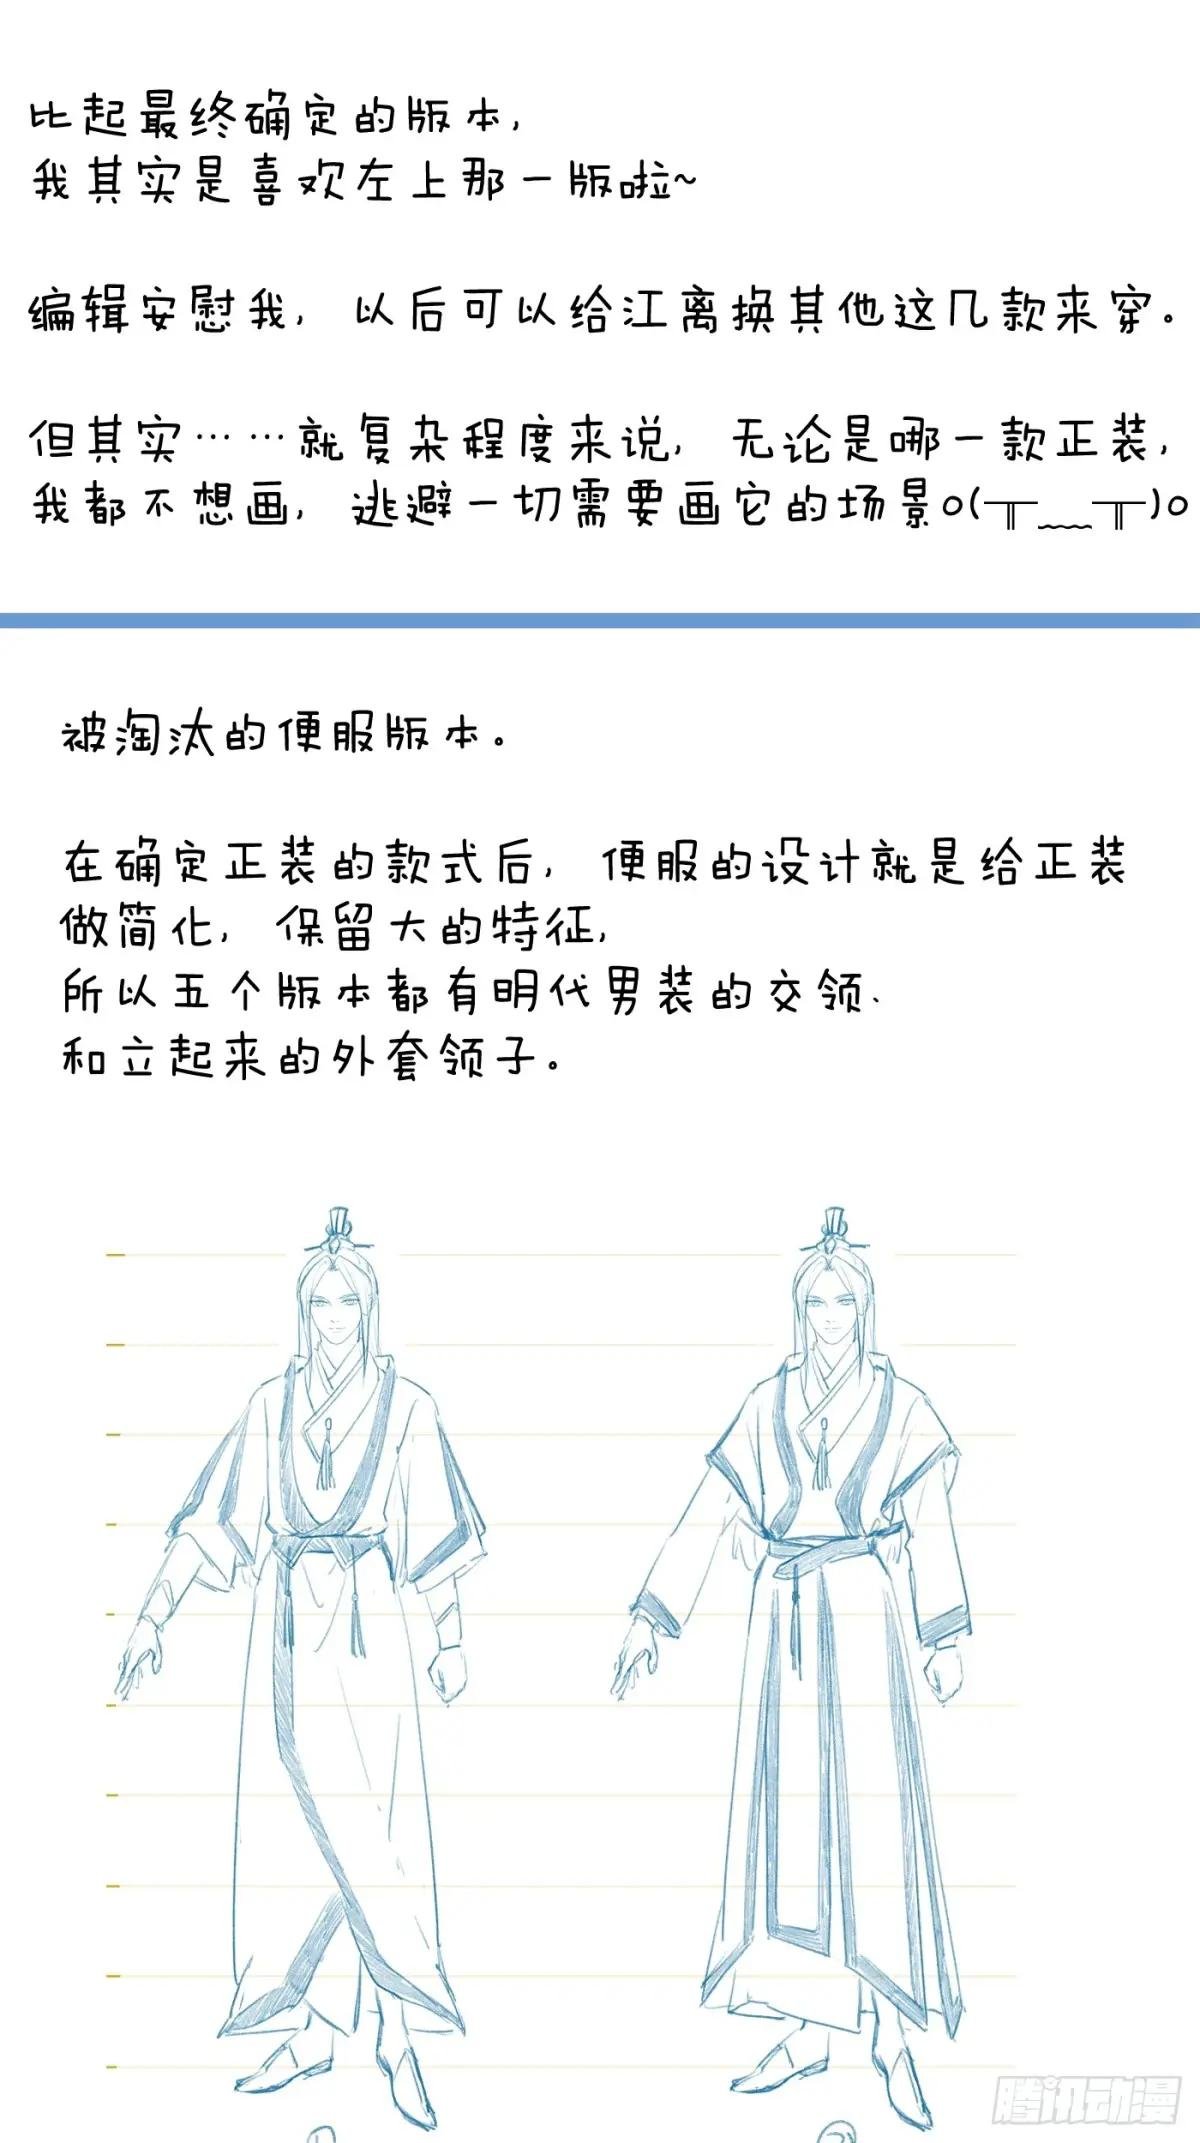 比起最终确定的版本,
我其实是喜欢左上那一版啦~
编辑安慰我, 以后可以给江离换其他这几款来穿。
但其实……就复杂程度来说, 无论是哪一款正装,
我都不想画, 逃避一切需要画它的场景o(╥﹏╥)o
被淘汰的便服版本。
在确定正装的款式后, 便服的设计就是给正装
做简化, 保留大的特征,
所以五个版本都有明代男装的交领、
和立起来的外套领子。
腾讯动漫